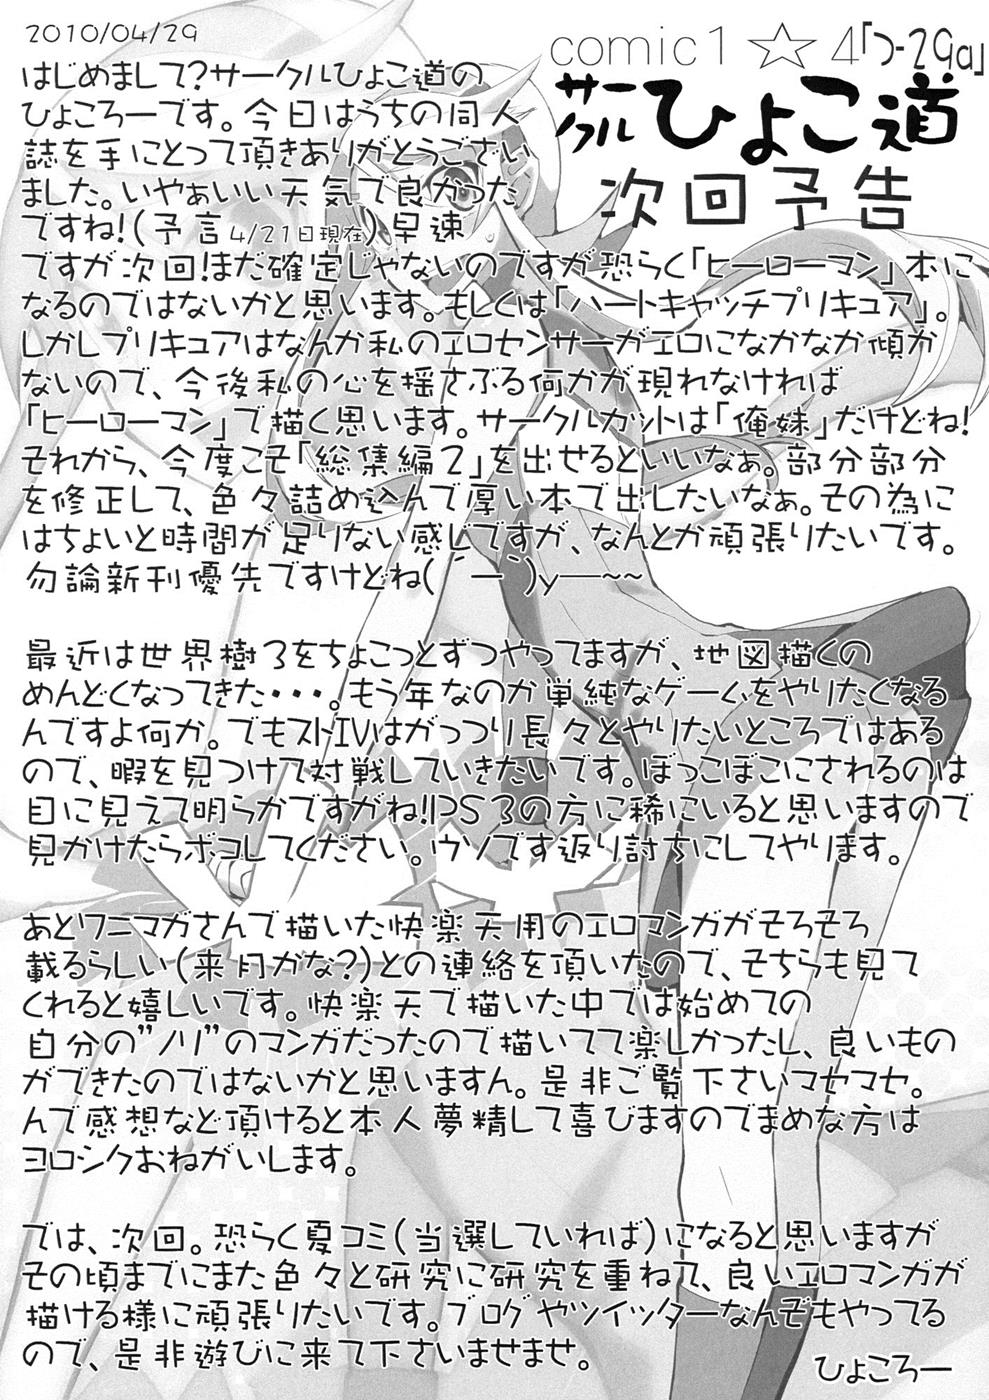 2010/04/29
comic1 ☆ 4「つ-29a」
サークルひよこ道
次回予告
はじめまして?サークルひよこ道の
ひよころーです。今日はうちの同人
誌を手にとって頂きありがとうござい
ました。いやぁいい天気で良かった
ですね!(予言4/21日現在)早速
ですが次回!まだ確定じゃないのですが恐らく「ヒーローマン」本に
なるのではないかと思います。もしくは「ハートキャッチプリキュア」。
しかしプリキュアはなんか私のエロセンサーがエロになかなか傾か
ないので、今後私の心を揺さぶる何かが現れなければ
「ヒーローマン」で描く思います。サークルカットは「俺妹」だけどね!
それから、今度こそ「総集編2」を出せるといいなぁ。部分部分
を修正して、色々詰め込んで厚い本で出したいなぁ。その為に
はちょいと時間が足りない感じですが、なんとか頑張りたいです。
勿論新刊優先ですけどね( ´ー`)y―~~
最近は世界樹3をちょこっとずつやってますが、地図描くの
めんどくなってきた・・・。もう年なのか単純なゲームをやりたくなる
んですよ何か。でもストIVはがっつり長々とやりたいところではある
ので、暇を見つけて対戦していきたいです。ぼっこぼこにされるのは
目に見えて明らかですがね!PS3の方に稀にいると思いますので
見かけたらボコしてください。ウソです返り討ちにしてやります。
あとワニマガさんで描いた快楽天用のエロマンガがそろそろ
載るらしい(来月かな?)との連絡を頂いたので、そちらも見て
くれると嬉しいです。快楽天で描いた中では始めての
自分の"ノリ"のマンガだったので描いてて楽しかったし、良いもの
ができたのではないかと思いますん。是非ご覧下さいマセマセ。
んで感想など頂けると本人夢精して喜びますのでまめな方は
ヨロシクおねがいします。
では、次回。恐らく夏コミ(当選していれば)になると思いますが
その頃までにまた色々と研究に研究を重ねて、良いエロマンガが
描ける様に頑張りたいです。ブログやツイッターなんぞもやってる
ので、是非遊びに来て下さいませませ。
ひよころー